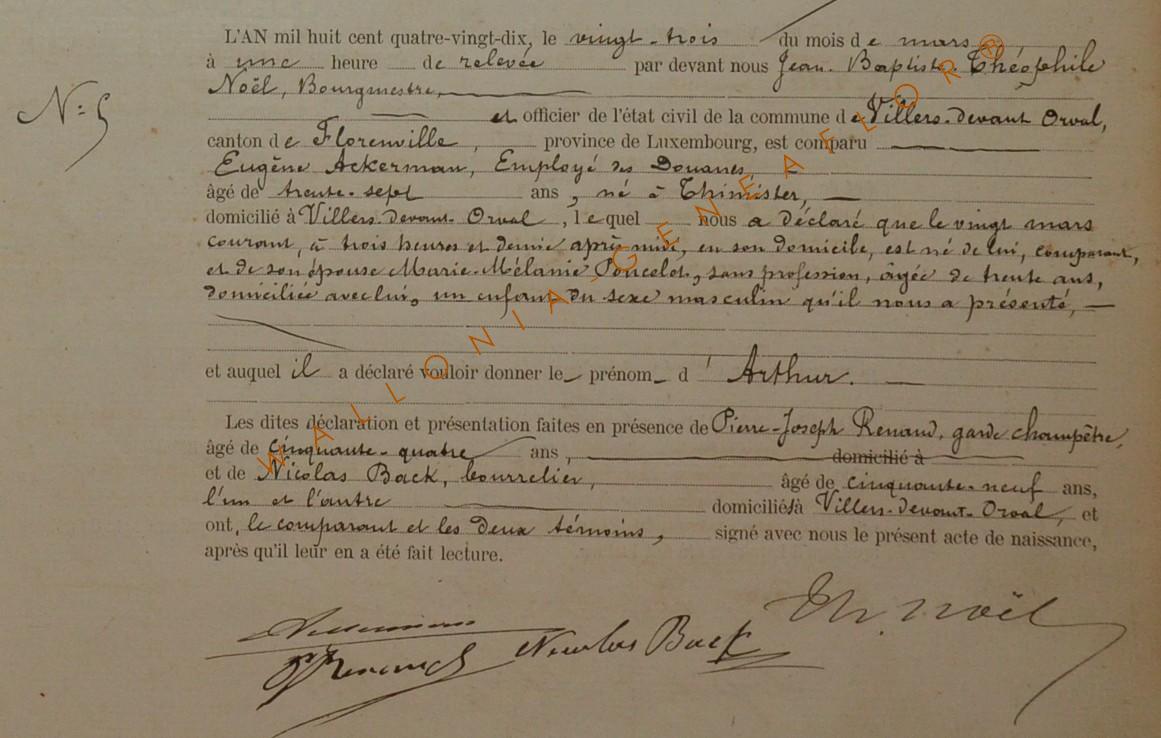 L'AN mil huit cent quatre-vingt-dix, le vingt-trois du mois de mars
à une heure de relevée par devant nous Jean-Baptiste-Théophile
Noël, Bourgmestre,
N° 5
et officier de l'état civil de la commune de Villers-devant Orval,
canton de Florenville, province de Luxembourg, est comparu
Eugène Ackerman, Employé des Douanes,
âgé de trente-sept ans, né à Thimister,
domicilié à Villers-devant-Orval, lequel nous a déclaré que le vingt mars
courant, à trois heures et demie après midi, en son domicile, est né de lui, comparant,
et de son épouse Marie-Mélanie Poncelot, sans profession, âgée de trente ans,
domiciliée avec lui, un enfant du sexe masculin qu'il nous a présenté,
et auquel il a déclaré vouloir donner le prénom d'Arthur.
Les dites déclaration et présentation faites en présence de Pierre-Joseph Renaud, garde champêtre,
âgé de cinquante-quatre ans, domicilié à
et de Nicolas Back, bourrelier, âgé de cinquante-neuf ans,
l'un et l'autre domiciliés à Villers-devant-Orval, et
ont, le comparant et les deux témoins, signé avec nous le présent acte de naissance,
après qu'il leur en a été fait lecture.
Th. Noël
Nicolas Back
P J Renaud
WALLONIA-GENEAFLOR®